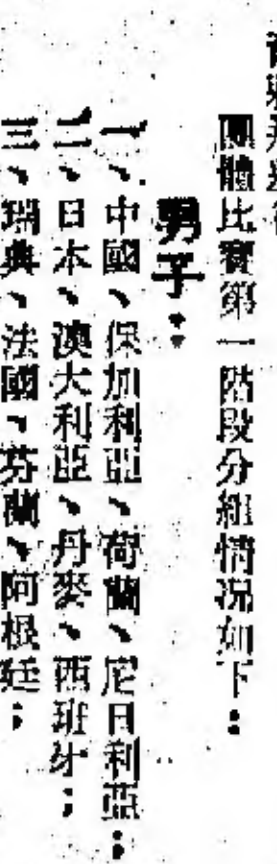 團體比賽第一階段分組情況如下：
男子：
一、中國、保加利亞、荷蘭、尼日利亞；
二、日本、澳大利亞、丹麥、西班牙；
三、瑞典、法國、芬蘭、阿根廷；